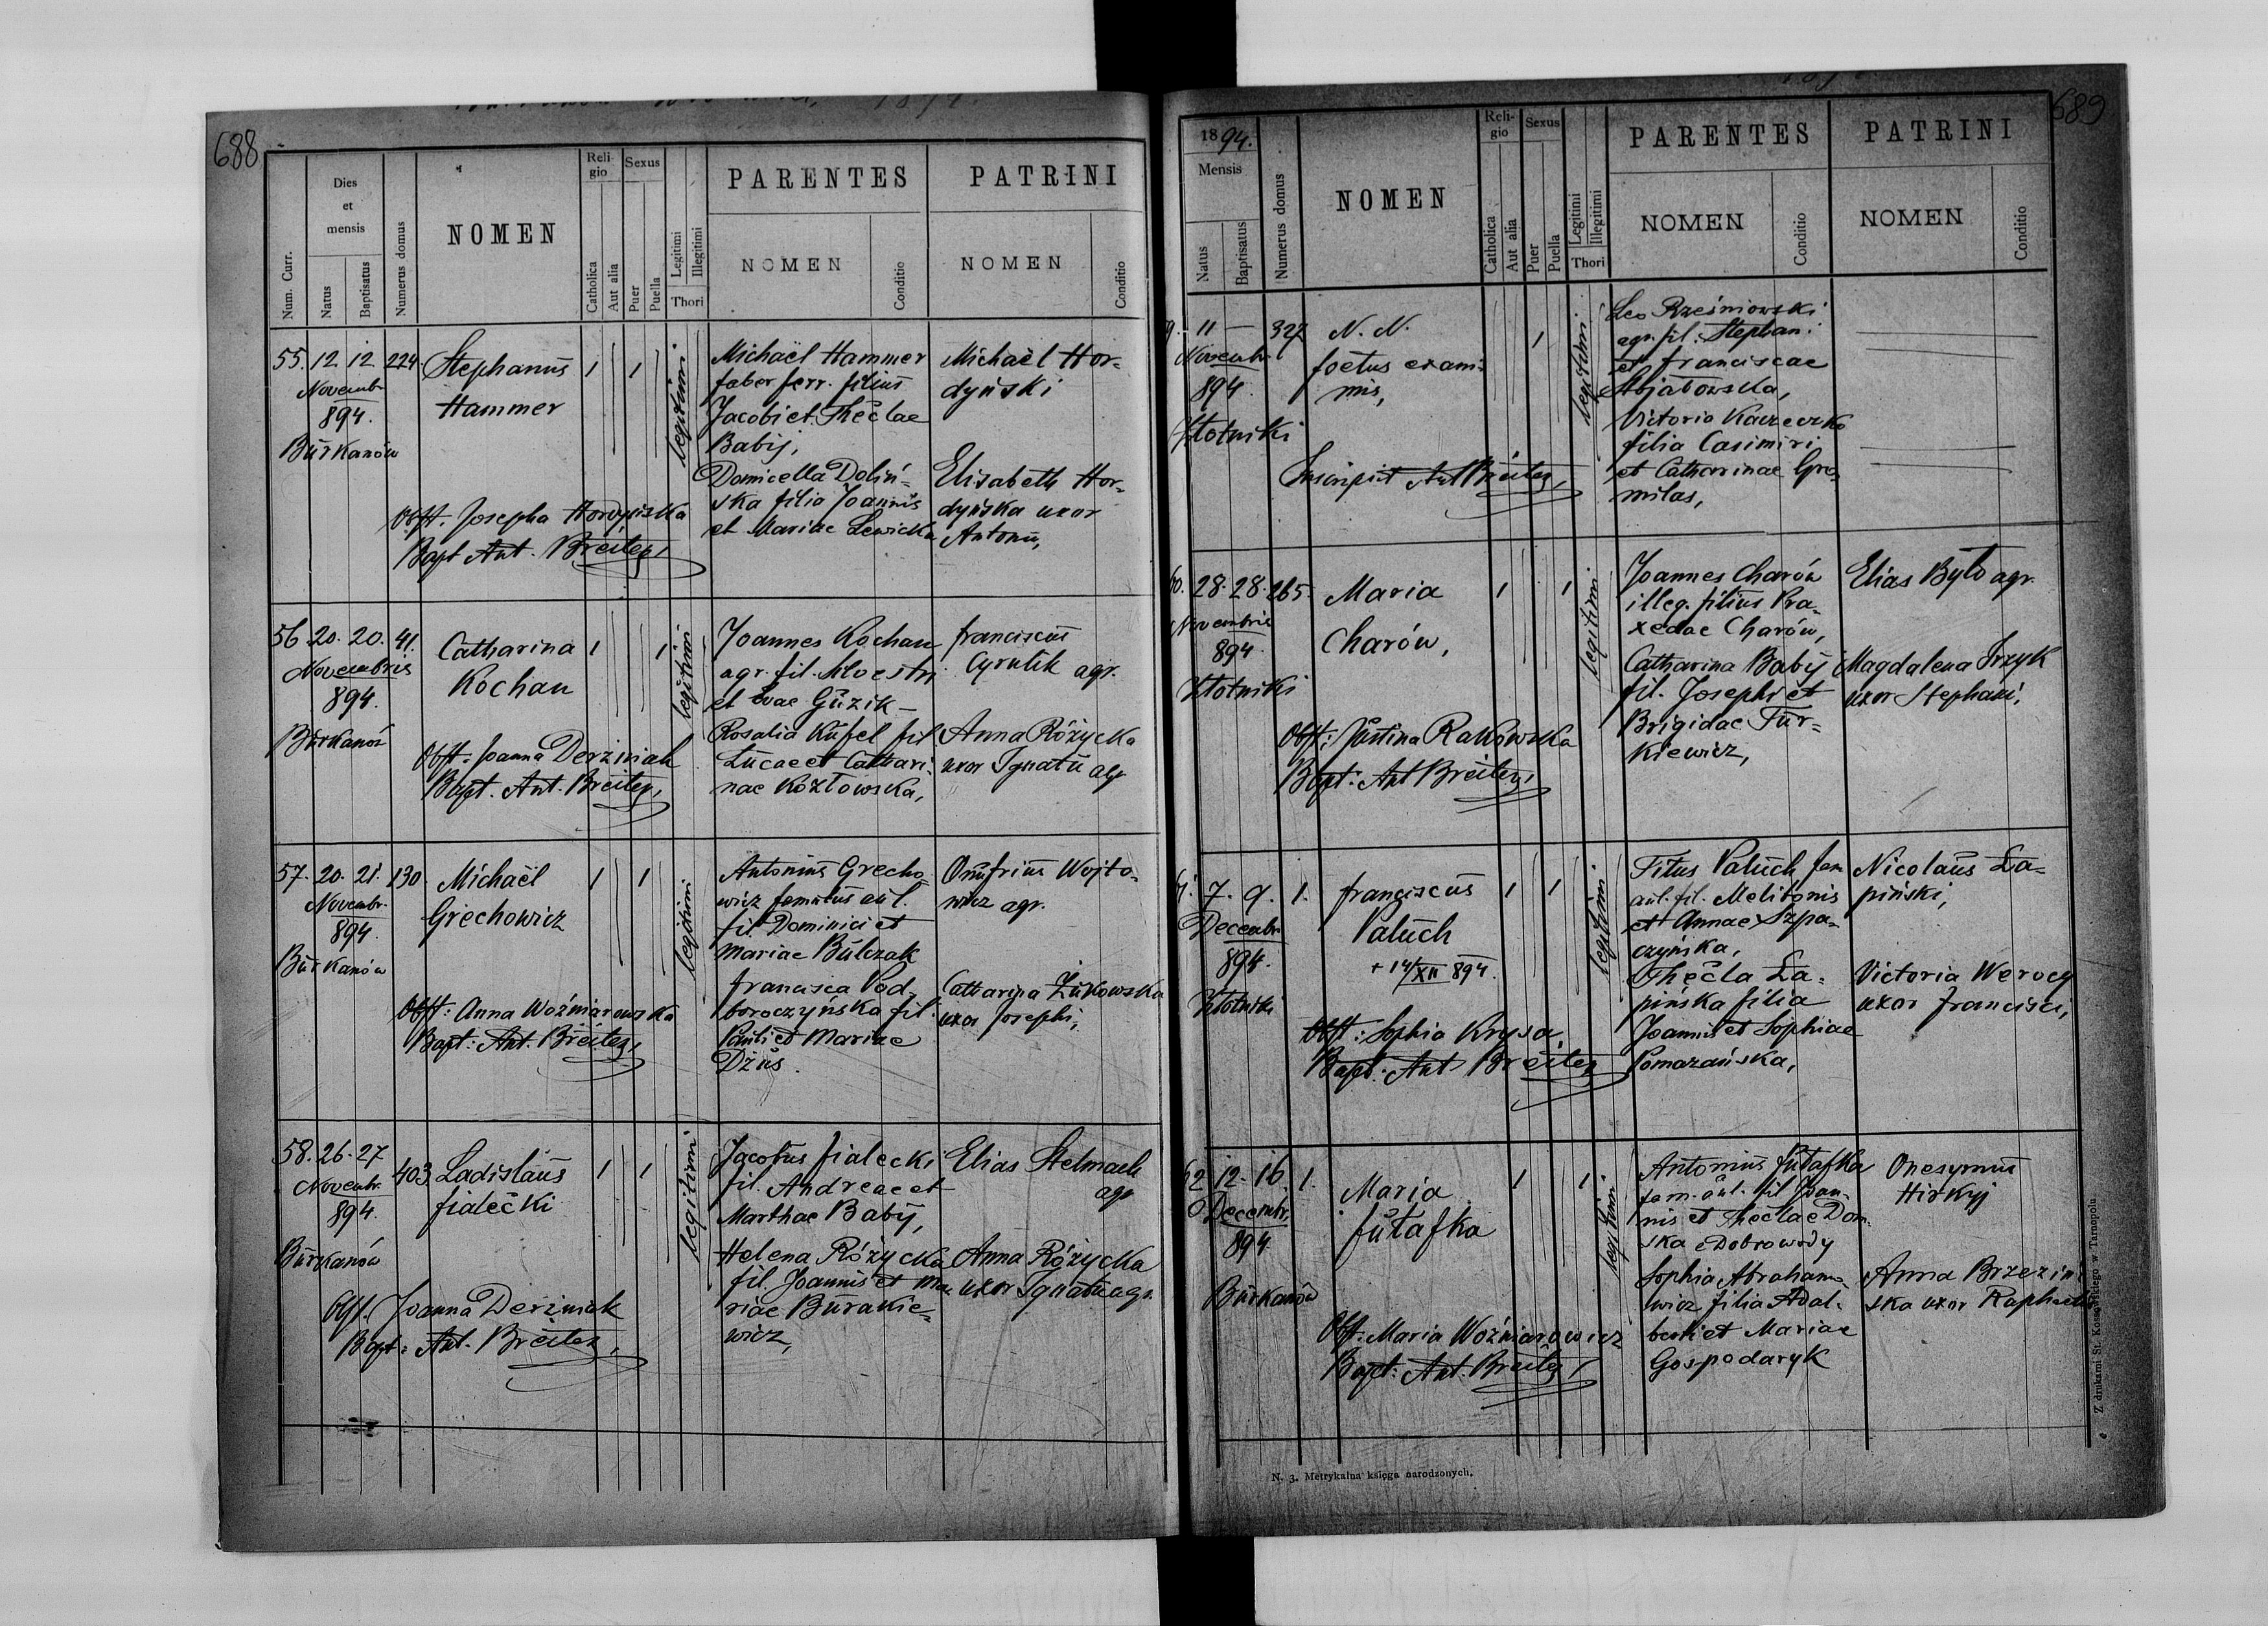 688
Num. Curr.
Dies
et
mensis
Natus
Baptisatus
Numerus domus
NOMEN
Reli-
gio
Catholica
Aut alia
Sexus
Puer
Puella
Legitimi
Illegitimi
Thori
PARENTES
NOMEN
Conditio
PATRINI
NOMEN
Conditio
55. 12. 12. 224.
Novembr.
894.
Burkanów
Stephanus
Hammer
1 1
legitimi
Michaël Hammer
faber ferr. filius
Jacobi et Theclae
Babij,
Domicella Doliń-
ska filia Joannis
et Mariae Lewicka
Michaël Hor-
dyński
Elisabeth Hor-
dyńska uxor
Antonii,
Obst. Josepha Hordyńska
Bapt Ant. Breiter,
56. 20. 20. 41.
Novembris
894.
Burkanów
Catharina
Kochan
1 1
legitimi
Joannes Kochan
agr. fil.
et Evae Guzik –
Rosalia Kufel fil
Lucae et Cathari-
nae Kozłowska,
Franciscus
Cyrulik agr.
Anna Różycka
uxor Ignatii agr
Obst. Joanna Derziniak
Bapt. Ant. Breiter,
57. 20. 21. 130.
Novembr.
894.
Burkanów
Michaël
Grechowicz
1 1
legitimi
Antonius Grecho-
wicz famulus aul.
fil. Dominici et
Mariae Bulczak
Francisca Pod-
boroczyńska fil.
Pauli et Mariae
Dżus.
Onufrius Wojto-
wicz agr.
Catharina Żukowska
uxor Josephi,
Obst: Anna Woźniarowska
Bapt: Ant. Breiter,
58. 26. 27
403.
Novembr.
894.
Burkanów
Ladislaus
Fialecki
1 1
legitimi
Jacobus Fialecki
fil. Andreae et
Marthae Babij,
Helena Różycka
fil. Joannis et Ma-
riae Burakie-
wicz,
Elias Stelmach
agr
Anna Różycka
uxor Ignatii agr.
Obst. Joanna Derziniak
Bapt: Ant. Breiter,
689
1894.
Mensis
Natus
Baptisatus
Numerus domus
NOMEN
Reli-
gio
Catholica
Aut alia
Sexus
Puer
Puella
Legitimi
Illegitimi
Thori
PARENTES
NOMEN
Conditio
PATRINI
NOMEN
Conditio
9. 11 — 327
Novembr.
894.
Złotniki
N. N.
foetus exani-
mis,
1
legitimi
Leo Rześniowski
agr. fil. Stephani
et Franciscae
Victoria Kaczeczko
filia Casimiri
et Catharinae Gro-
milas,
Inscripsit Ant Breiter,
60. 28. 28. 265.
Novembris
894.
Złotniki
Maria
Charów,
1 1
legitimi
Joannes Charów
illeg. filius Pra-
xedae Charów,
Catharina Babij
fil. Josephi et
Brigidae Tur-
kiewicz,
Elias Było agr.
Magdalena Irzyk
uxor Stephani,
Obst: Justina Rakowska
Bapt: Ant Breiter,
61. 7. 9. 1.
Decembr.
894.
Złotniki
Franciscus
Paluch
+ 14/XII 894.
1 1
legitimi
Titus Paluch fam
aul. fil. Melitonis
et Annae Szpa-
czyńska,
Thecla Ła-
pińska filia
Joannis et Sophiae
Pomazańska,
Nicolaus Ła-
piński,
Victoria Werocy
uxor Francisci,
Obst: Sophia Krysa,
Bapt. Ant Breiter
62 12. 16. 1.
Decembr.
894.
Burkanów
Maria
Futafka
1 1
legitimi
Antonius Futafka
fam. aul. fil Joan-
nis et Theclae Dom-
ska e Dobrowody
Sophia Abrahamo-
wicz filia Adal-
berti et Mariae
Gospodaryk
Onesymus
Hirkyj
Anna Brzeziń
ska uxor Raphaelis
Obst. Maria Woźniarowicz
Bapt: Ant. Breiter,
N. 3. Metrykalna księga narodzonych.
Z drukarni St. Kossowskiego w Tarnopolu